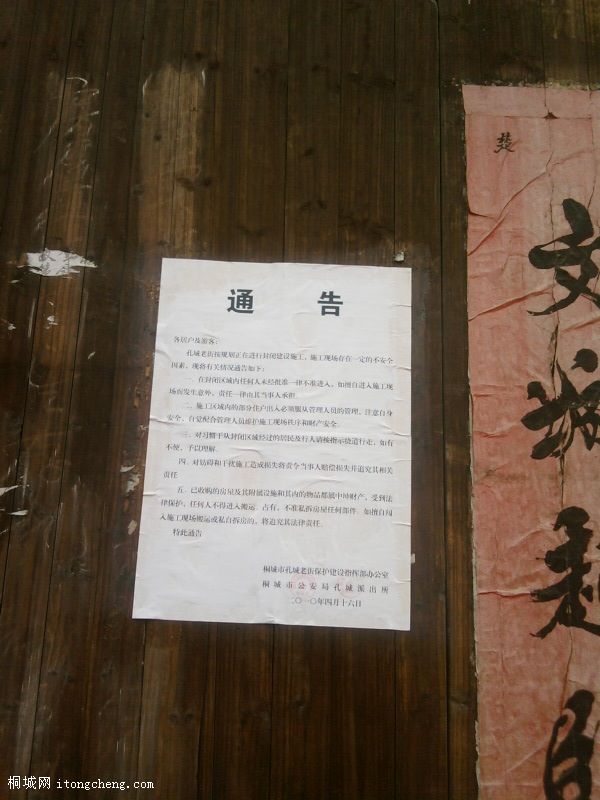 通 告
各居户及游客：
孔城老街按规划正在进行封闭建设施工，施工现场存在一定的不安全
因素，现将有关情况通告如下：
一、在封闭区域内任何人未经批准一律不准进入，如擅自进入施工现
场而发生意外，责任一律由其当事人承担。
二、施工区域内的部分住户出入必须服从管理人员的管理，注意自身
安全，自觉配合管理人员维护施工现场秩序和财产安全。
三、对习惯于从封闭区域经过的居民及行人请按指示绕道行走，如有
不便，予以理解。
四、对妨碍和干扰施工造成损失将责令当事人赔偿损失并追究其相关
责任
五、已收购的房屋及其附属设施和其内的物品都属中坤财产，受到法
律保护，任何人不得进入搬运、占有，不准私拆房屋任何部件。如擅自闯
入施工现场搬运或私自拆房的，将追究其法律责任。
特此通告
桐城市孔城老街保护建设指挥部办公室
桐城市公安局孔城派出所
二〇一〇年四月十六日
文
桐城网 itongcheng.com